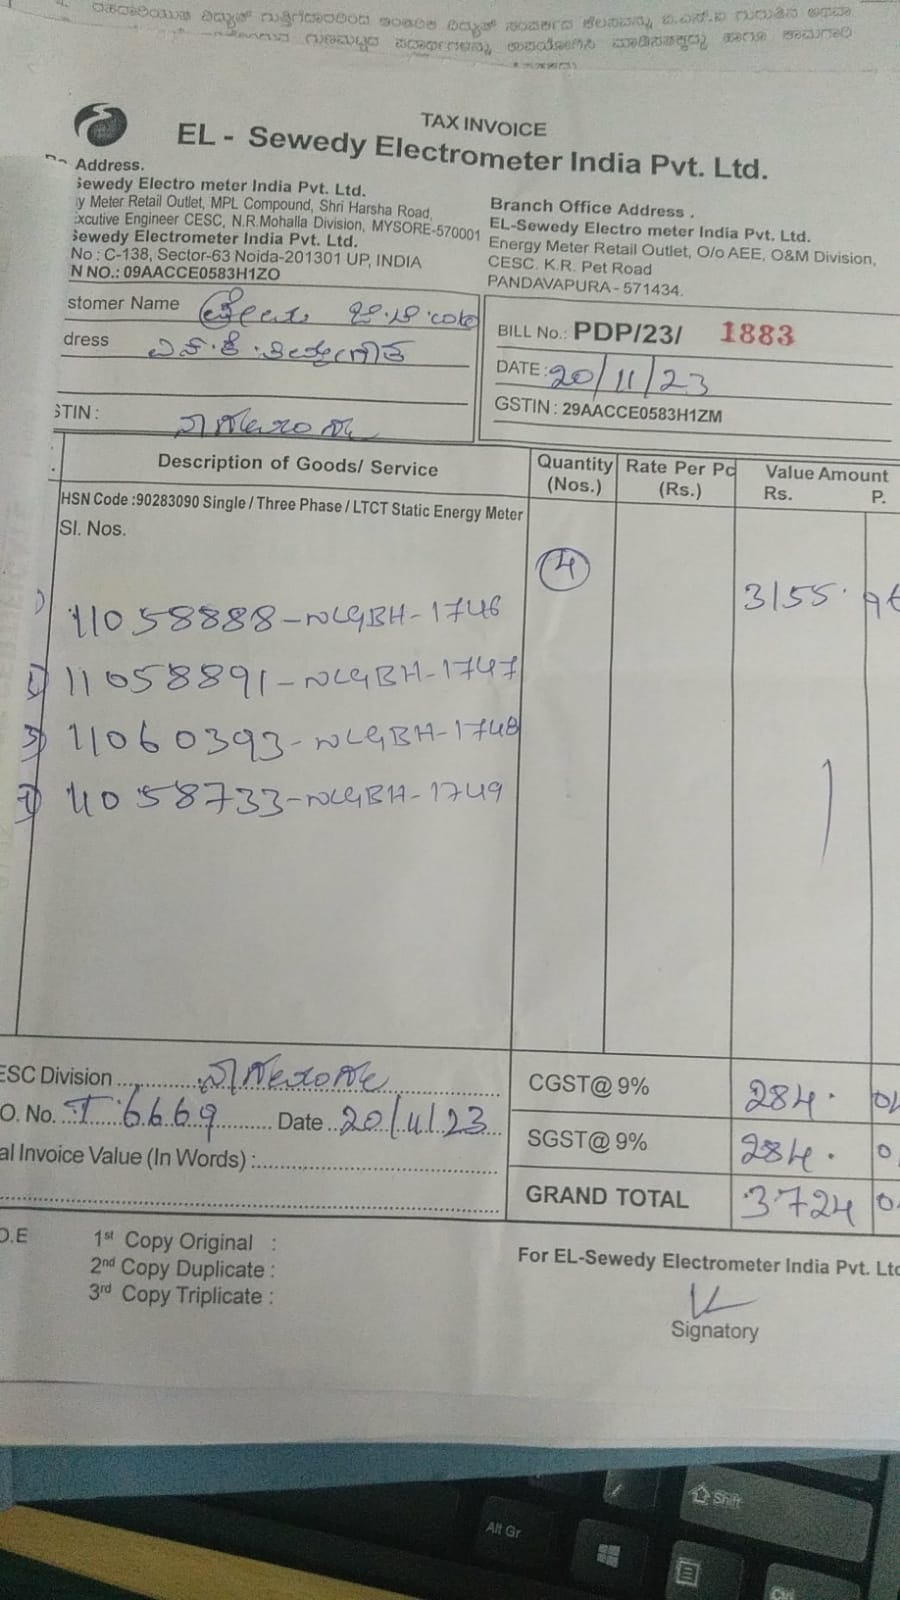 TAX INVOICE
EL - Sewedy Electrometer India Pvt. Ltd.
Address.
Sewedy Electro meter India Pvt. Ltd.
y Meter Retail Outlet, MPL Compound, Shri Harsha Road,
Excutive Engineer CESC, N.R.Mohalla Division, MYSORE-570001
Sewedy Electrometer India Pvt. Ltd.
No : C-138, Sector-63 Noida-201301 UP, INDIA
N NO.: 09AACCE0583H1ZO
Branch Office Address .
EL-Sewedy Electro meter India Pvt. Ltd.
Energy Meter Retail Outlet, O/o AEE, O&M Division,
CESC. K.R. Pet Road
PANDAVAPURA - 571434.
stomer Name
dress
STIN :
BILL No.: PDP/23/ 1883
DATE : 20/11/23
GSTIN : 29AACCE0583H1ZM
Description of Goods/ Service
Quantity (Nos.)
Rate Per Pc (Rs.)
Value Amount
Rs. P.
HSN Code :90283090 Single / Three Phase / LTCT Static Energy Meter
Sl. Nos.
4
3155.
11058888-NLGBH-1746
11058891-NLGBH-1747
3) 11060393-NLGBH-1748
11058733-NLGBH-1749
ESC Division
O. No. T 6669 Date 20/11/23
al Invoice Value (In Words) :
CGST@ 9% 284.
SGST@ 9% 284.
GRAND TOTAL 3724
O.E
1st Copy Original :
2nd Copy Duplicate :
3rd Copy Triplicate :
For EL-Sewedy Electrometer India Pvt. Ltd
Signatory
Alt Gr
Shift